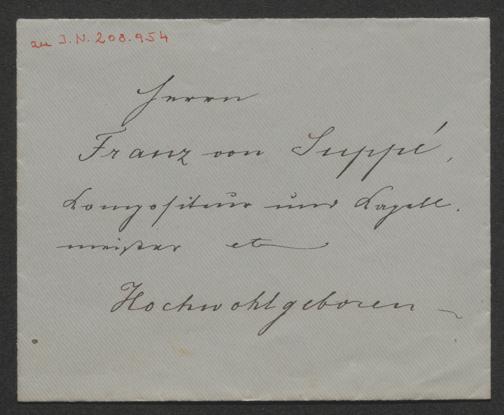 zu I.N. 208.954
Herrn
Franz von Suppé,
Kompositeur und Kapell-
meister etc
Hochwohlgeboren